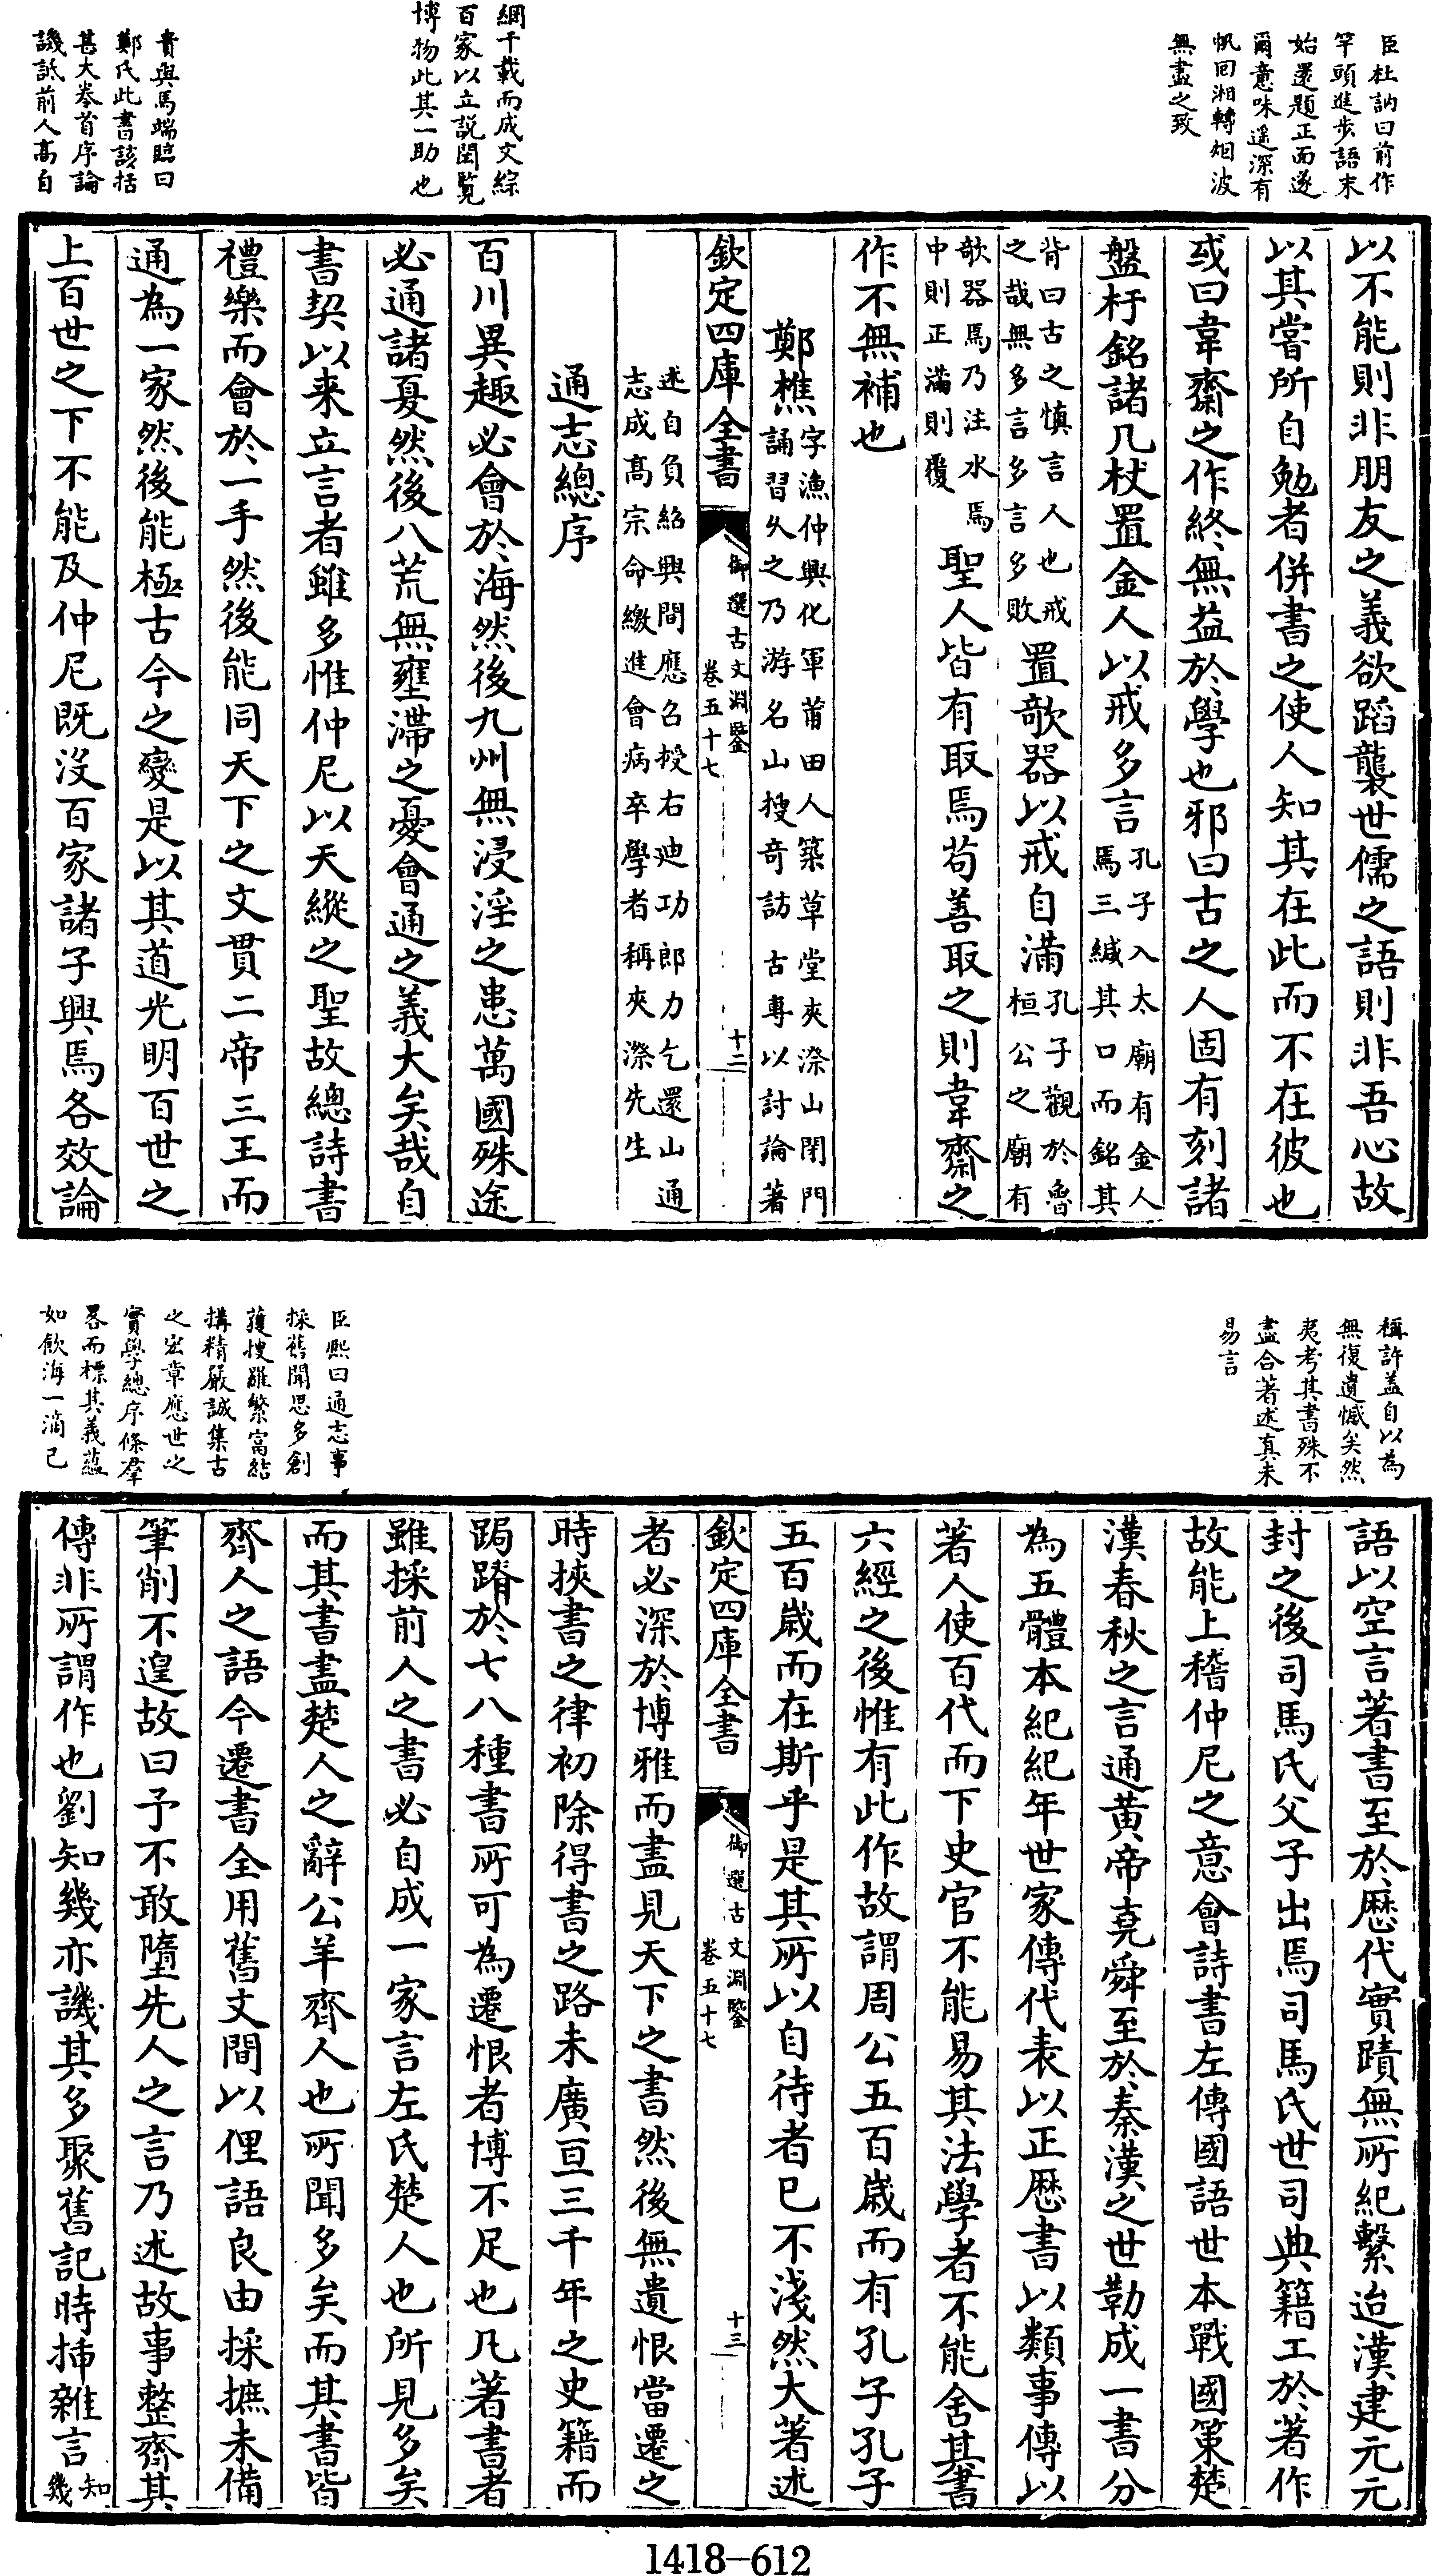 臣杜訥曰前作
竿頭進步語末
始還題正而遂
爾意味遥深有
帆回湘轉烟波
無盡之致
綱千載而成文綜
百家以立説閎覧
博物此其一助也
貴與馬端臨曰
鄭氏此書該括
甚大卷首序論
譏詆前人髙自
以不能則非朋友之義欲蹈襲世儒之語則非吾心故
以其嘗所自勉者併書之使人知其在此而不在彼也
或曰韋齋之作終無益於學也邪曰古之人固有刻諸
盤杅銘諸几杖置金人以戒多言孔子入太廟有金人焉三緘其口而銘其
背曰古之慎言人也戒之哉無多言多言多敗置欹器以戒自滿孔子觀於魯桓公之廟有
欹器焉乃注水焉中則正滿則覆聖人皆有取焉苟善取之則韋齋之
作不無補也
鄭樵字漁仲興化軍莆田人築草堂夾漈山閉門誦習乆之乃游名山搜竒訪古專以討論著
欽定四庫全書
御選古文淵鑒
卷五十七
十二
述自負紹興間應召授右迪功郎力乞還山通志成髙宗命繳進會病卒學者稱夾漈先生
通志總序
百川異趣必會於海然後九州無浸淫之患萬國殊途
必通諸夏然後八荒無壅滯之憂會通之義大矣哉自
書契以来立言者雖多惟仲尼以天縱之聖故總詩書
禮樂而會於一手然後能同天下之文貫二帝三王而
通為一家然後能極古今之變是以其道光明百世之
上百世之下不能及仲尼既沒百家諸子興焉各效論
稱許盖自以為
無復遺憾矣然
夷考其書殊不
盡合著述真未
易言
臣熙曰通志事
採舊聞思多創
獲搜羅繁富結
構精嚴誠集古
之宏章應世之
實學總序條羣
畧而標其義藴
如飲海一滴已
語以空言著書至於歴代實蹟無所紀繫迨漢建元元
封之後司馬氏父子出焉司馬氏世司典籍工於著作
故能上稽仲尼之意會詩書左傳國語世本戰國策楚
漢春秋之言通黄帝堯舜至於秦漢之世勒成一書分
為五體本紀紀年世家傳代表以正厯書以類事傳以
著人使百代而下史官不能易其法學者不能舍其書
六經之後惟有此作故謂周公五百嵗而有孔子孔子
五百嵗而在斯乎是其所以自待者已不淺然大著述
欽定四庫全書
御選古文淵鑒
卷五十七
十三
者必深於博雅而盡見天下之書然後無遺恨當遷之
時挾書之律初除得書之路未廣亘三千年之史籍而
跼蹐於七八種書所可為遷恨者博不足也凡著書者
雖採前人之書必自成一家言左氏楚人也所見多矣
而其書盡楚人之辭公羊齊人也所聞多矣而其書皆
齊人之語今遷書全用舊文間以俚語良由採摭未備
筆削不遑故曰予不敢墮先人之言乃述故事整齊其
傳非所謂作也劉知幾亦譏其多聚舊記時挿雜言知幾
1418-612